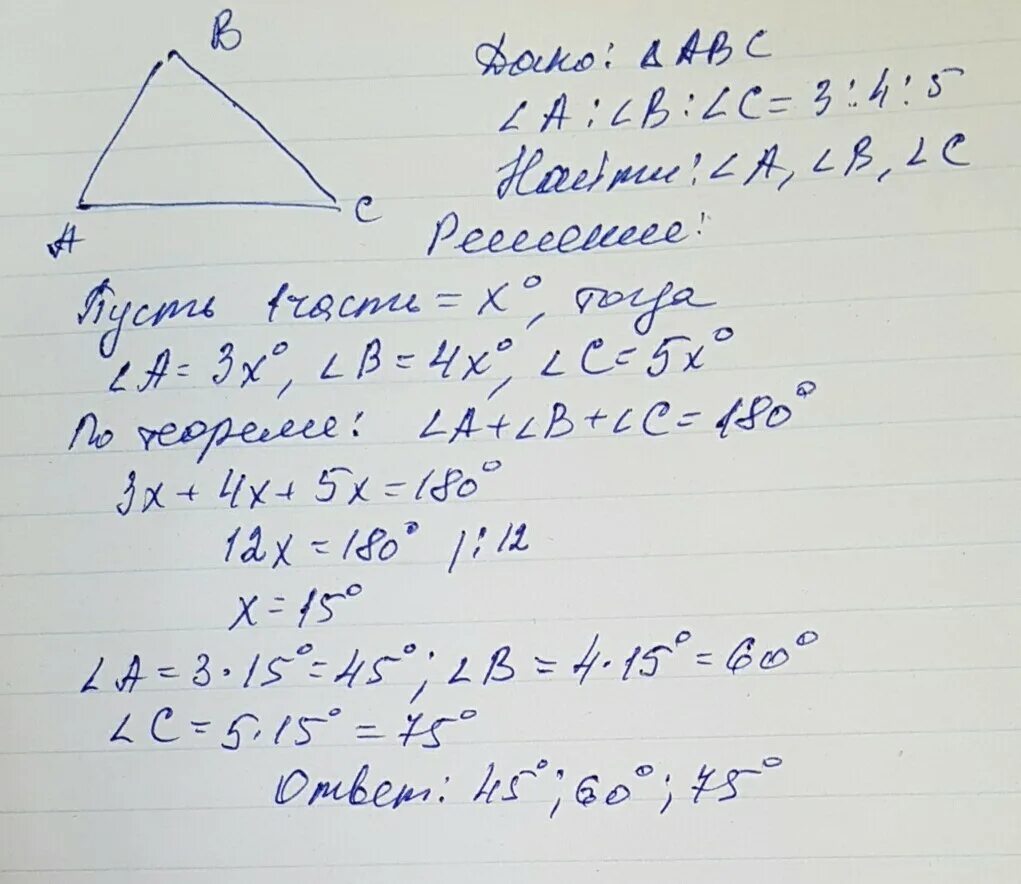 B
A
C
Дано: ΔABC
∠A:∠B:∠C=3:4:5
Найти:∠A,∠B,∠C
Решение:
Пусть 1часть=x°, тогда
∠A=3x°,∠B=4x°,∠C=5x°
По теореме: ∠A+∠B+∠C=180°
3x+4x+5x=180°
12x=180° |:12
x=15°
∠A=3·15°=45°;∠B=4·15°=60°
∠C=5·15°=75°
Ответ: 45°;60°;75°